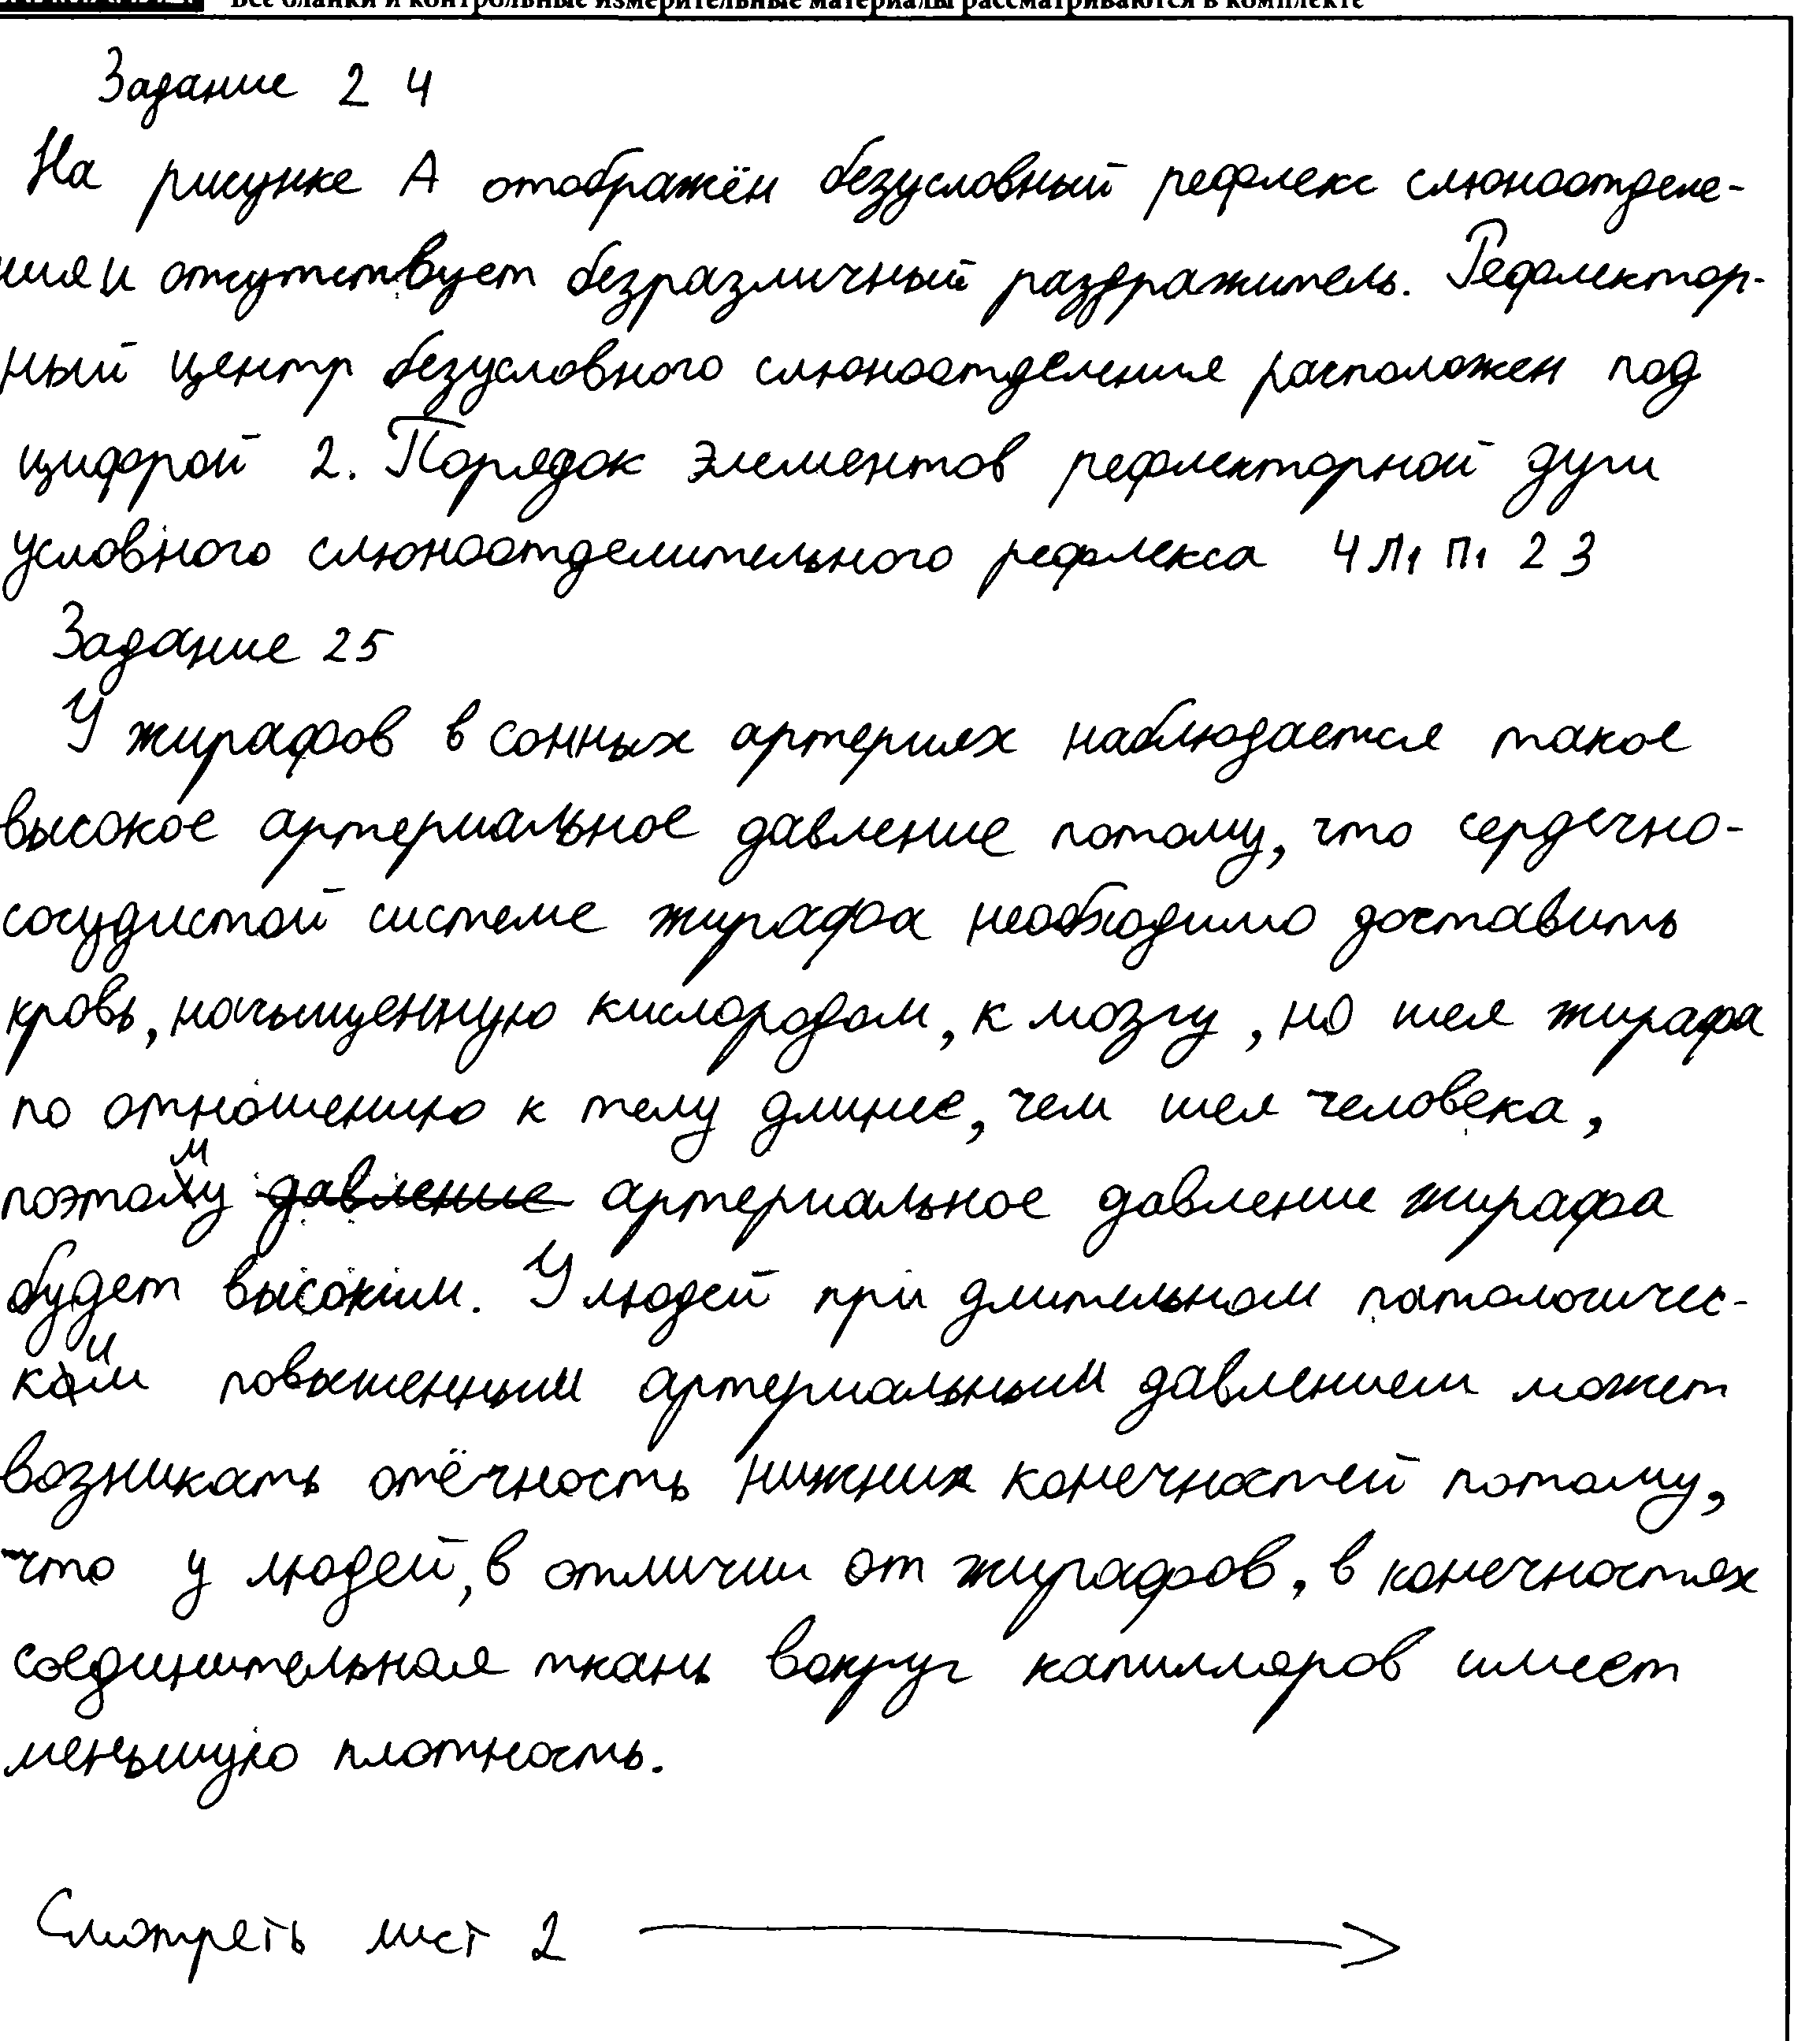 Все бланки и контрольные измерительные материалы рассматриваются в комплекте
Задание 24
На рисунке А отображён безусловный рефлекс слюноотделе-
ния и отсутствует безразличный раздражитель. Рефлектор-
ный центр безусловного слюноотделения расположен под
цифрой 2. Порядок элементов рефлекторной дуги
условного слюноотделительного рефлекса 4 Л1 П1 2 3
Задание 25
У жирафов в сонных артериях наблюдается такое
высокое артериальное давление потому, что сердечно-
сосудистой системе жирафа необходимо доставить
кровь, насыщенную кислородом, к мозгу, но шея жирафа
по отношению к телу длинее, чем шея человека,
поэтому давление артериальное давление жирафа
будет высоким. У людей при длительном патологичес-
ким повышенным артериальным давлением может
возникать отёчность нижних конечностей потому,
что у людей, в отличии от жирафов, в конечностях
соединительная ткань вокруг капилляров имеет
меньшую плотность.
Смотреть лист 2